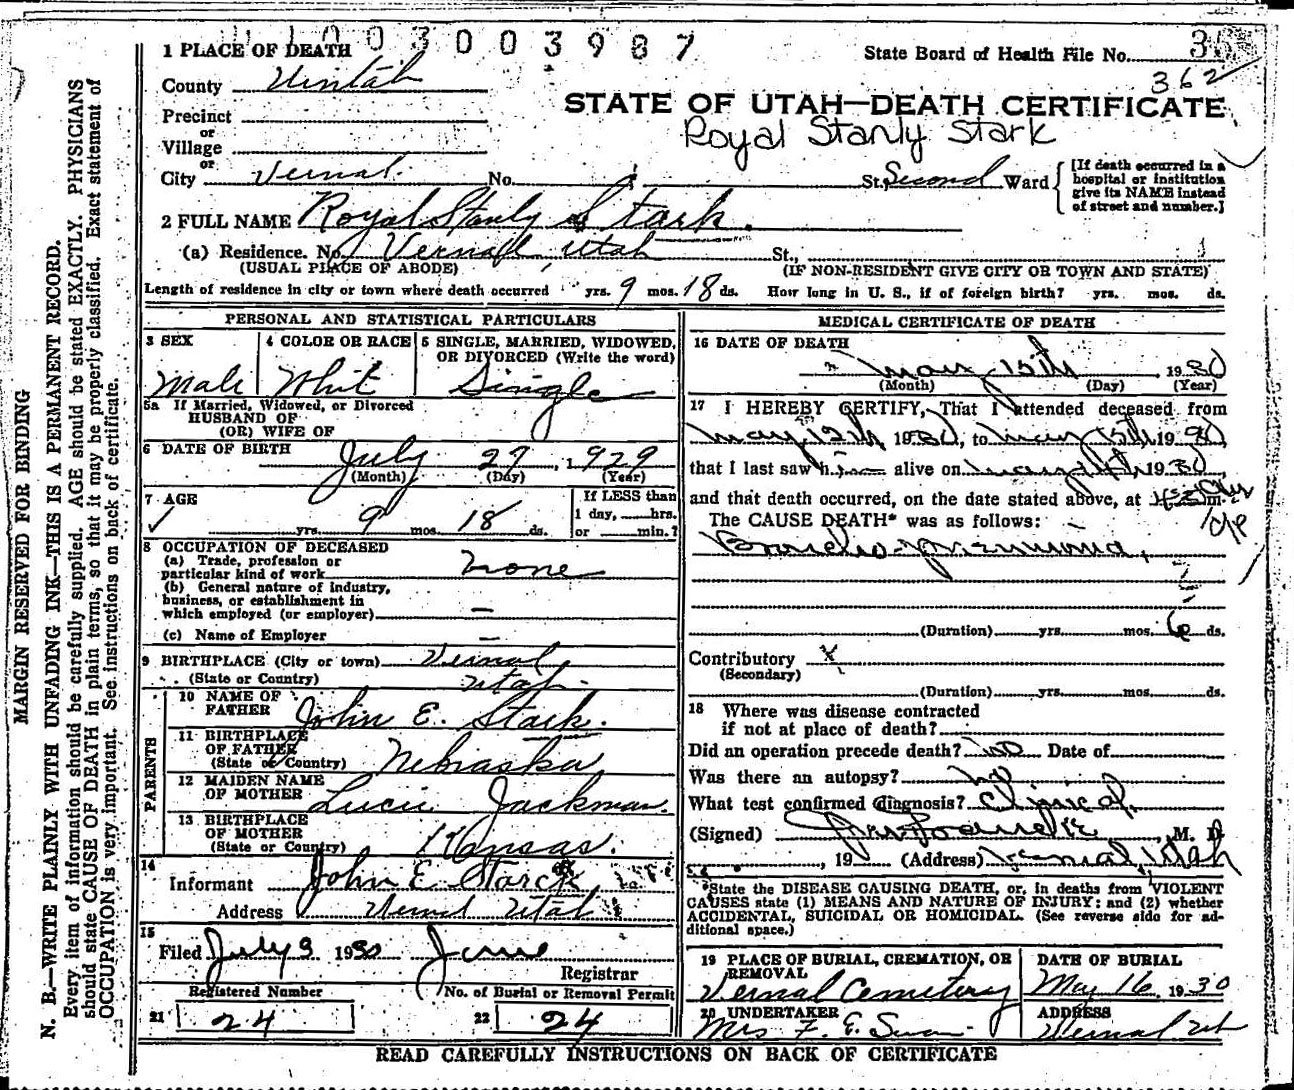 1003003987
1 PLACE OF DEATH
State Board of Health File No.
362
County Uintah
STATE OF UTAH—DEATH CERTIFICATE
Precinct
or
Royal Stanly Stark
Village
or
City Vernal. No. St., Second Ward
[If death occurred in a
hospital or institution
give its NAME instead
of street and number.]
2 FULL NAME Royal Stanly Stark.
(a) Residence. No. Vernal, Utah St.,
(USUAL PLACE OF ABODE) (IF NON-RESIDENT GIVE CITY OR TOWN AND STATE)
Length of residence in city or town where death occurred yrs. 9 mos. 18 ds. How long in U. S., if of foreign birth? yrs. mos. ds.
PERSONAL AND STATISTICAL PARTICULARS
3 SEX
Male
4 COLOR OR RACE
Whit
5 SINGLE, MARRIED, WIDOWED,
OR DIVORCED (Write the word)
Single
5a If Married, Widowed, or Divorced
HUSBAND OF
(OR) WIFE OF
6 DATE OF BIRTH July 27, 1929
(Month) (Day) (Year)
7 AGE
✓ yrs. 9 mos. 18 ds.
If LESS than
1 day, hrs.
or min.?
8 OCCUPATION OF DECEASED
(a) Trade, profession or
particular kind of work none
(b) General nature of industry,
business, or establishment in
which employed (or employer) —
(c) Name of Employer —
9 BIRTHPLACE (City or town) Vernal
(State or Country) Utah.
PARENTS
10 NAME OF
FATHER John E. Stark.
11 BIRTHPLACE
OF FATHER
(State or Country) Nebraska
12 MAIDEN NAME
OF MOTHER Lucie Jackman.
13 BIRTHPLACE
OF MOTHER
(State or Country) Kansas.
14
Informant John E Starck
Address Vernal Utah
15
Filed July 3 1930
Registrar
Registered Number No. of Burial or Removal Permit
21 24 22 24
MEDICAL CERTIFICATE OF DEATH
16 DATE OF DEATH
May 15th 1930
(Month) (Day) (Year)
17 I HEREBY CERTIFY, That I attended deceased from
May 12th 1930, to May 15th 1930,
that I last saw him alive on May 1930,
and that death occurred, on the date stated above, at m.
The CAUSE DEATH* was as follows:
Broncho-pneumonia,
(Duration) yrs. mos. 6 ds.
Contributory x
(Secondary)
(Duration) yrs. mos. ds.
18 Where was disease contracted
if not at place of death?
Did an operation precede death? no Date of
Was there an autopsy? no
What test confirmed diagnosis? Clinical.
(Signed) , M. D
, 19 (Address) Vernal, Utah
*State the DISEASE CAUSING DEATH, or, in deaths from VIOLENT
CAUSES state (1) MEANS AND NATURE OF INJURY: and (2) whether
ACCIDENTAL, SUICIDAL OR HOMICIDAL. (See reverse side for ad-
ditional space.)
19 PLACE OF BURIAL, CREMATION, OR
REMOVAL
Vernal Cemetery
DATE OF BURIAL
May 16, 1930
20 UNDERTAKER
Mrs F. E. Swain
ADDRESS
Vernal Ut
READ CAREFULLY INSTRUCTIONS ON BACK OF CERTIFICATE
MARGIN RESERVED FOR BINDING
N. B.—WRITE PLAINLY WITH UNFADING INK—THIS IS A PERMANENT RECORD.
Every item of information should be carefully supplied. AGE should be stated EXACTLY. PHYSICIANS
should state CAUSE OF DEATH in plain terms, so that it may be properly classified. Exact statement of
OCCUPATION is very important. See instructions on back of certificate.